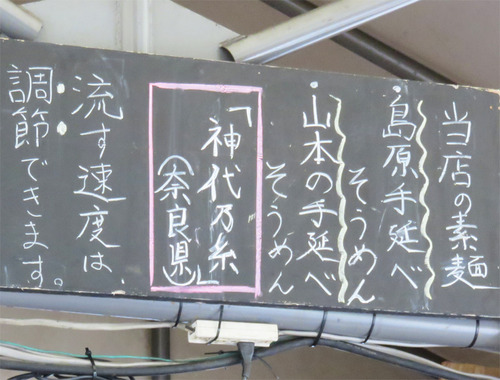 当店の素麺
・島原手延べ
そうめん
・山本の手延べ
そうめん
「神代乃糸」
(奈良県)
流す速度は、
調節できます。